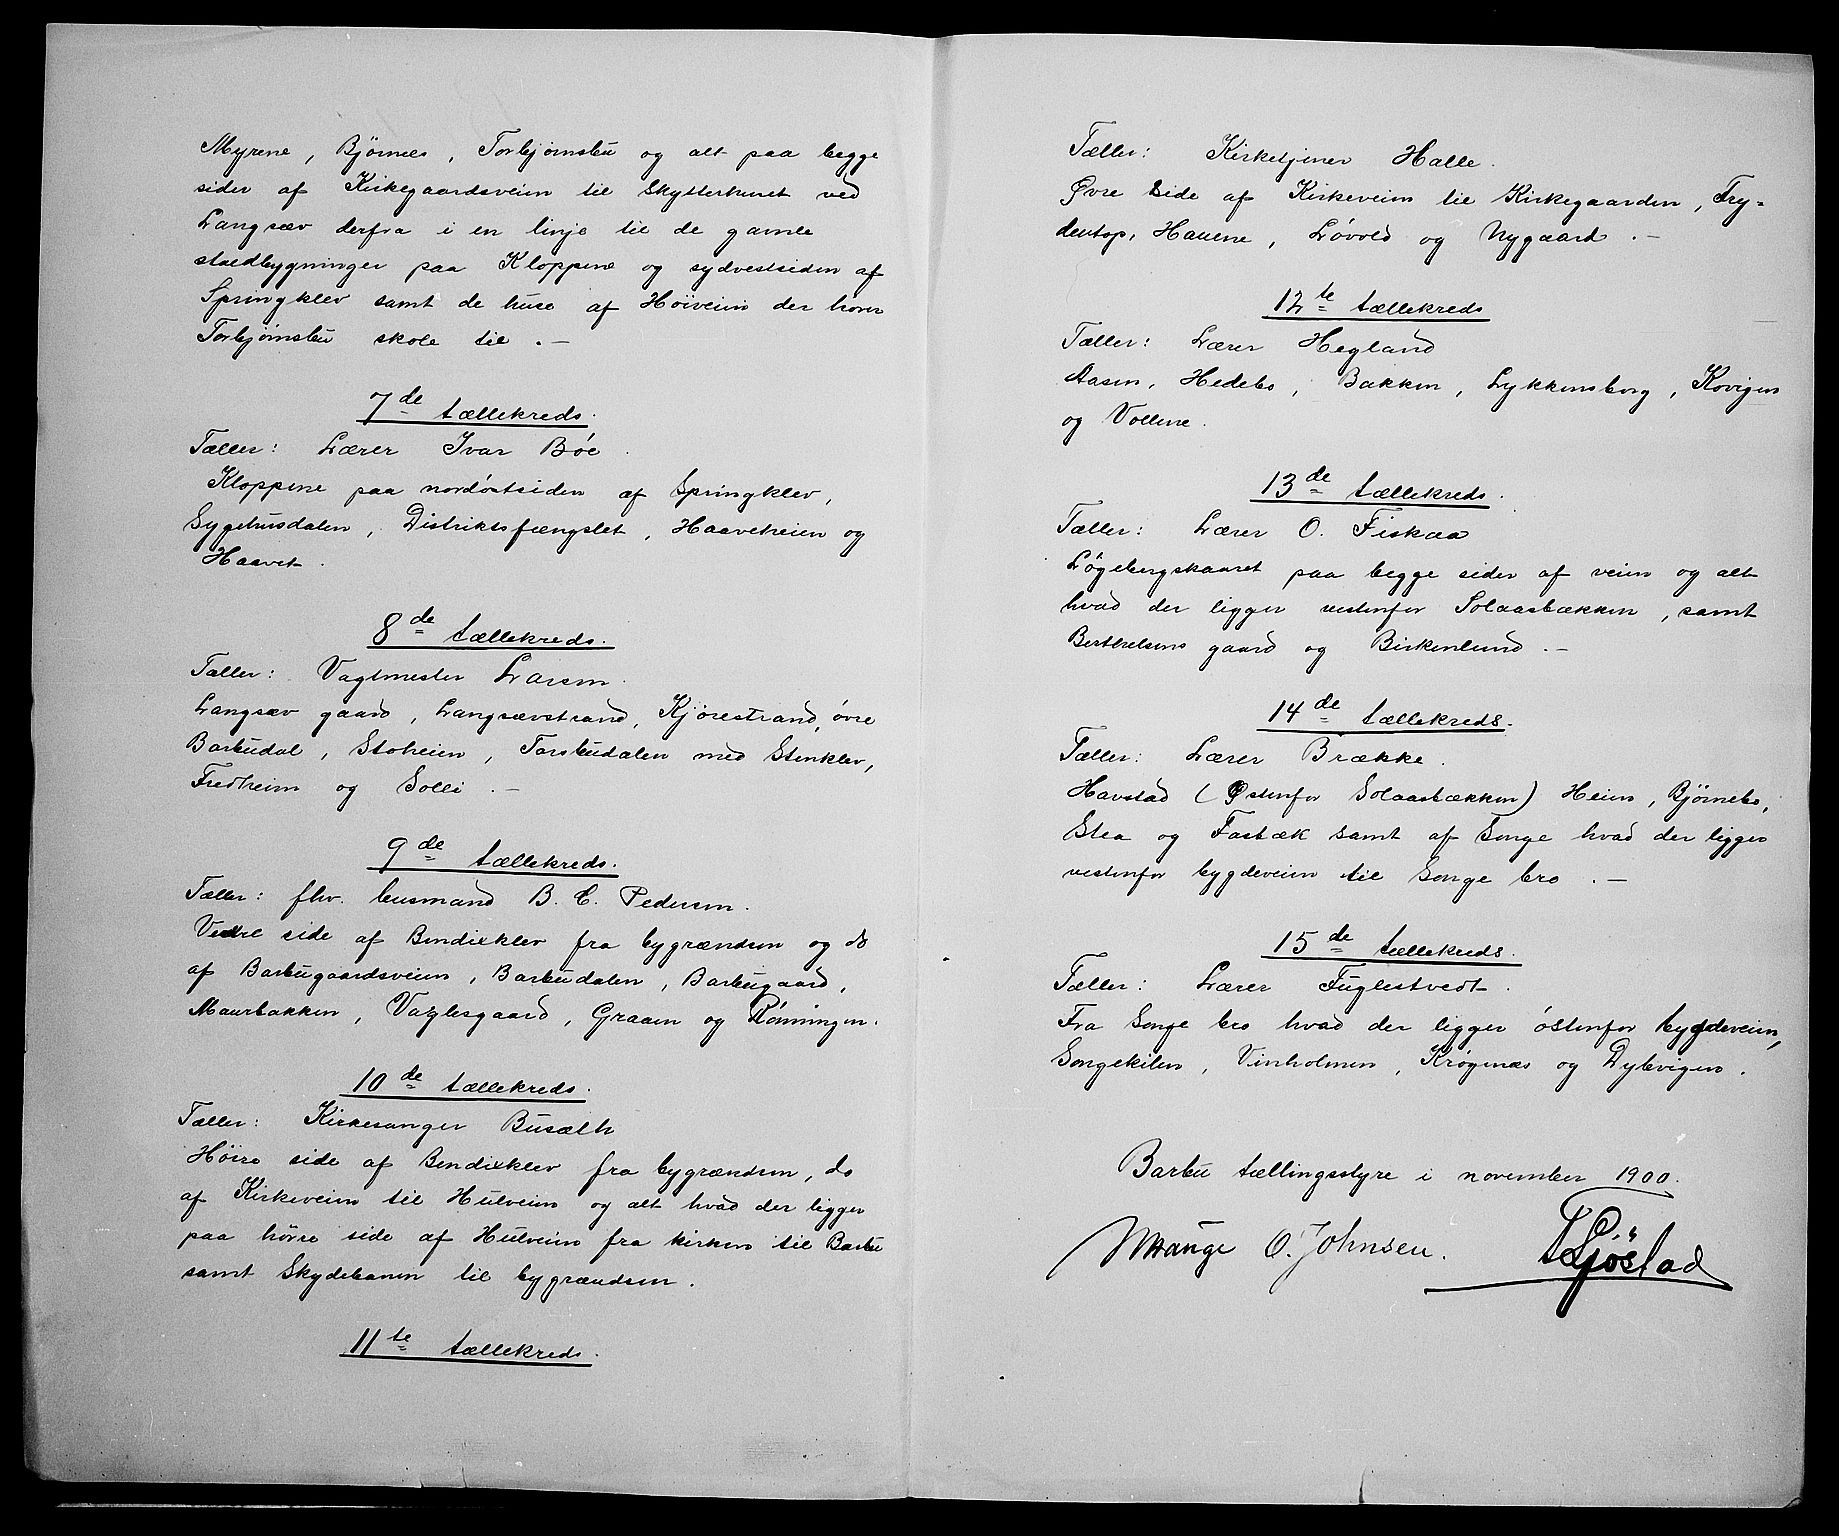 Myrene, Bjørnes, Torbjørnsbu og alt paa begge
sider af Kirkegaardsveien til Skytterhuset ved
Langsæv derfra i en linje til de gamle
staldbygninger paa Kloppene og sydvestsiden af
Springklev samt de huse af Høiveien der hører
Torbjørnsbu skole til .—
7de tællekreds.
Tæller: Lærer Ivar Bóe.
Kloppene paa nordóstsiden af Springklev,
Sygehusdalen, Distriktsfængslet, Haaveheien og
Haavet.
8de tællekreds.
Tæller: Vagtmester Larsen.
Langsæv gaard, Langsævstrand, Kjørestrand, óvre
Barbudal, Stoheien, Torsbudalen med Stenklev,
Fredheim og Solli .—
9de tællekreds.
Tæller: fhv. husmand B. C. Pedersen.
Vestre side af Bendixklev fra bygrændsen og do
af Barbugaardsveien, Barbudalen, Barbugaard,
Maurbakken, Vaglesgaard, Graaen og Rónningen.
10de tællekreds.
Tæller: Kirkesanger Busæth
Høire side af Bendixklev fra bygrændsen, do
af Kirkeveien til Hulveien og alt hvad der ligger
paa høire side af Hulveien fra kirken til Barbu
samt Skydebanen til bygrændsen.
11te tællekreds.
Tæller: Kirketjener Halle.
Øvre side af Kirkeveien til Kirkegaarden, Fry-
dentop, Hauene, Lóvold og Nygaard .—
12te tællekreds
Tæller: Lærer Hegland
Aasen, Hedebo, Bakken, Lykkensborg, Kovigen
og Vollene.
13de tællekreds.
Tæller: Lærer O. Fiskaa
Lógebergskaaret paa begge sider af veien og alt
hvad der ligger vestenfor Solaasbækken, samt
Berthelsens gaard og Birkenlund .—
14de tællekreds.
Tæller: Lærer Brække.
Havstad (Østenfor Solaasbækken) Heien, Bjørnebo,
Stea og Fasbæk samt af Songe hvad der ligger
vestenfor bygdeveien til Songe bro .—
15de tællekreds.
Tæller: Lærer Fuglestvedt.
Fra Songe bro hvad der ligger óstenfor bygdeveien,
Songekilen, Vinholmen, Krøgenæs og Dybvigen.
Barbu tællingsstyre i november 1900.
O. Johnsen. Sjöstad